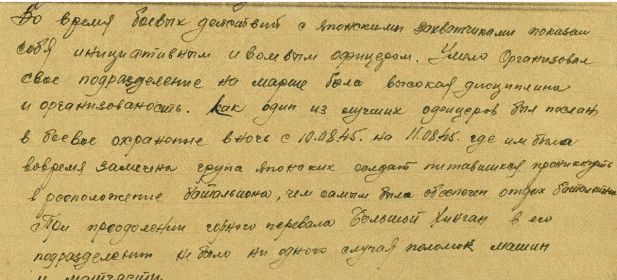 Во время боевых действий с японскими захватчиками показал
себя инициативным и волевым офицером. Умело организовал
свое подразделение на марше была высокая дисциплина
и организованость. Как один из лучших офицеров был послан
в боевое охранение в ночь с 10.08.45. на 11.08.45. где им была
вовремя замечена група японских солдат питавшихся проникнуть
в росположение батальиона, чем самым был обеспечен отдых батальиона
При преодолении горного перевала Большой Хинган в его
подразделении не было ни одного случая поломок машин
и матчасти.